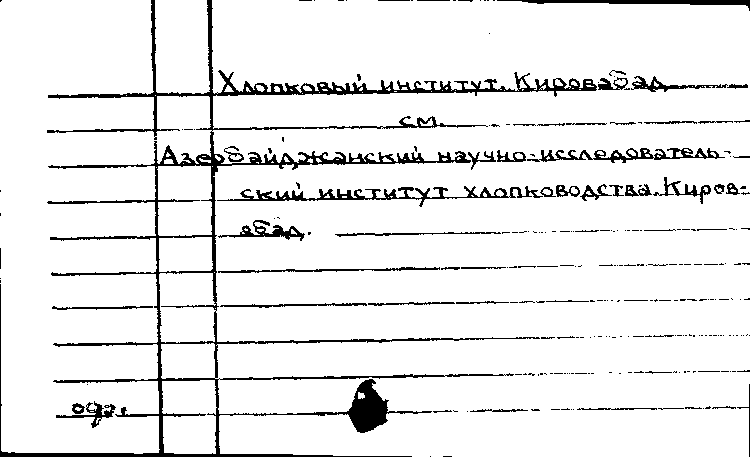 Хлопковый институт. Кировабад
см.
Азербайджанский научно-исследователь-
ский институт хлопководства. Киров-
абад.